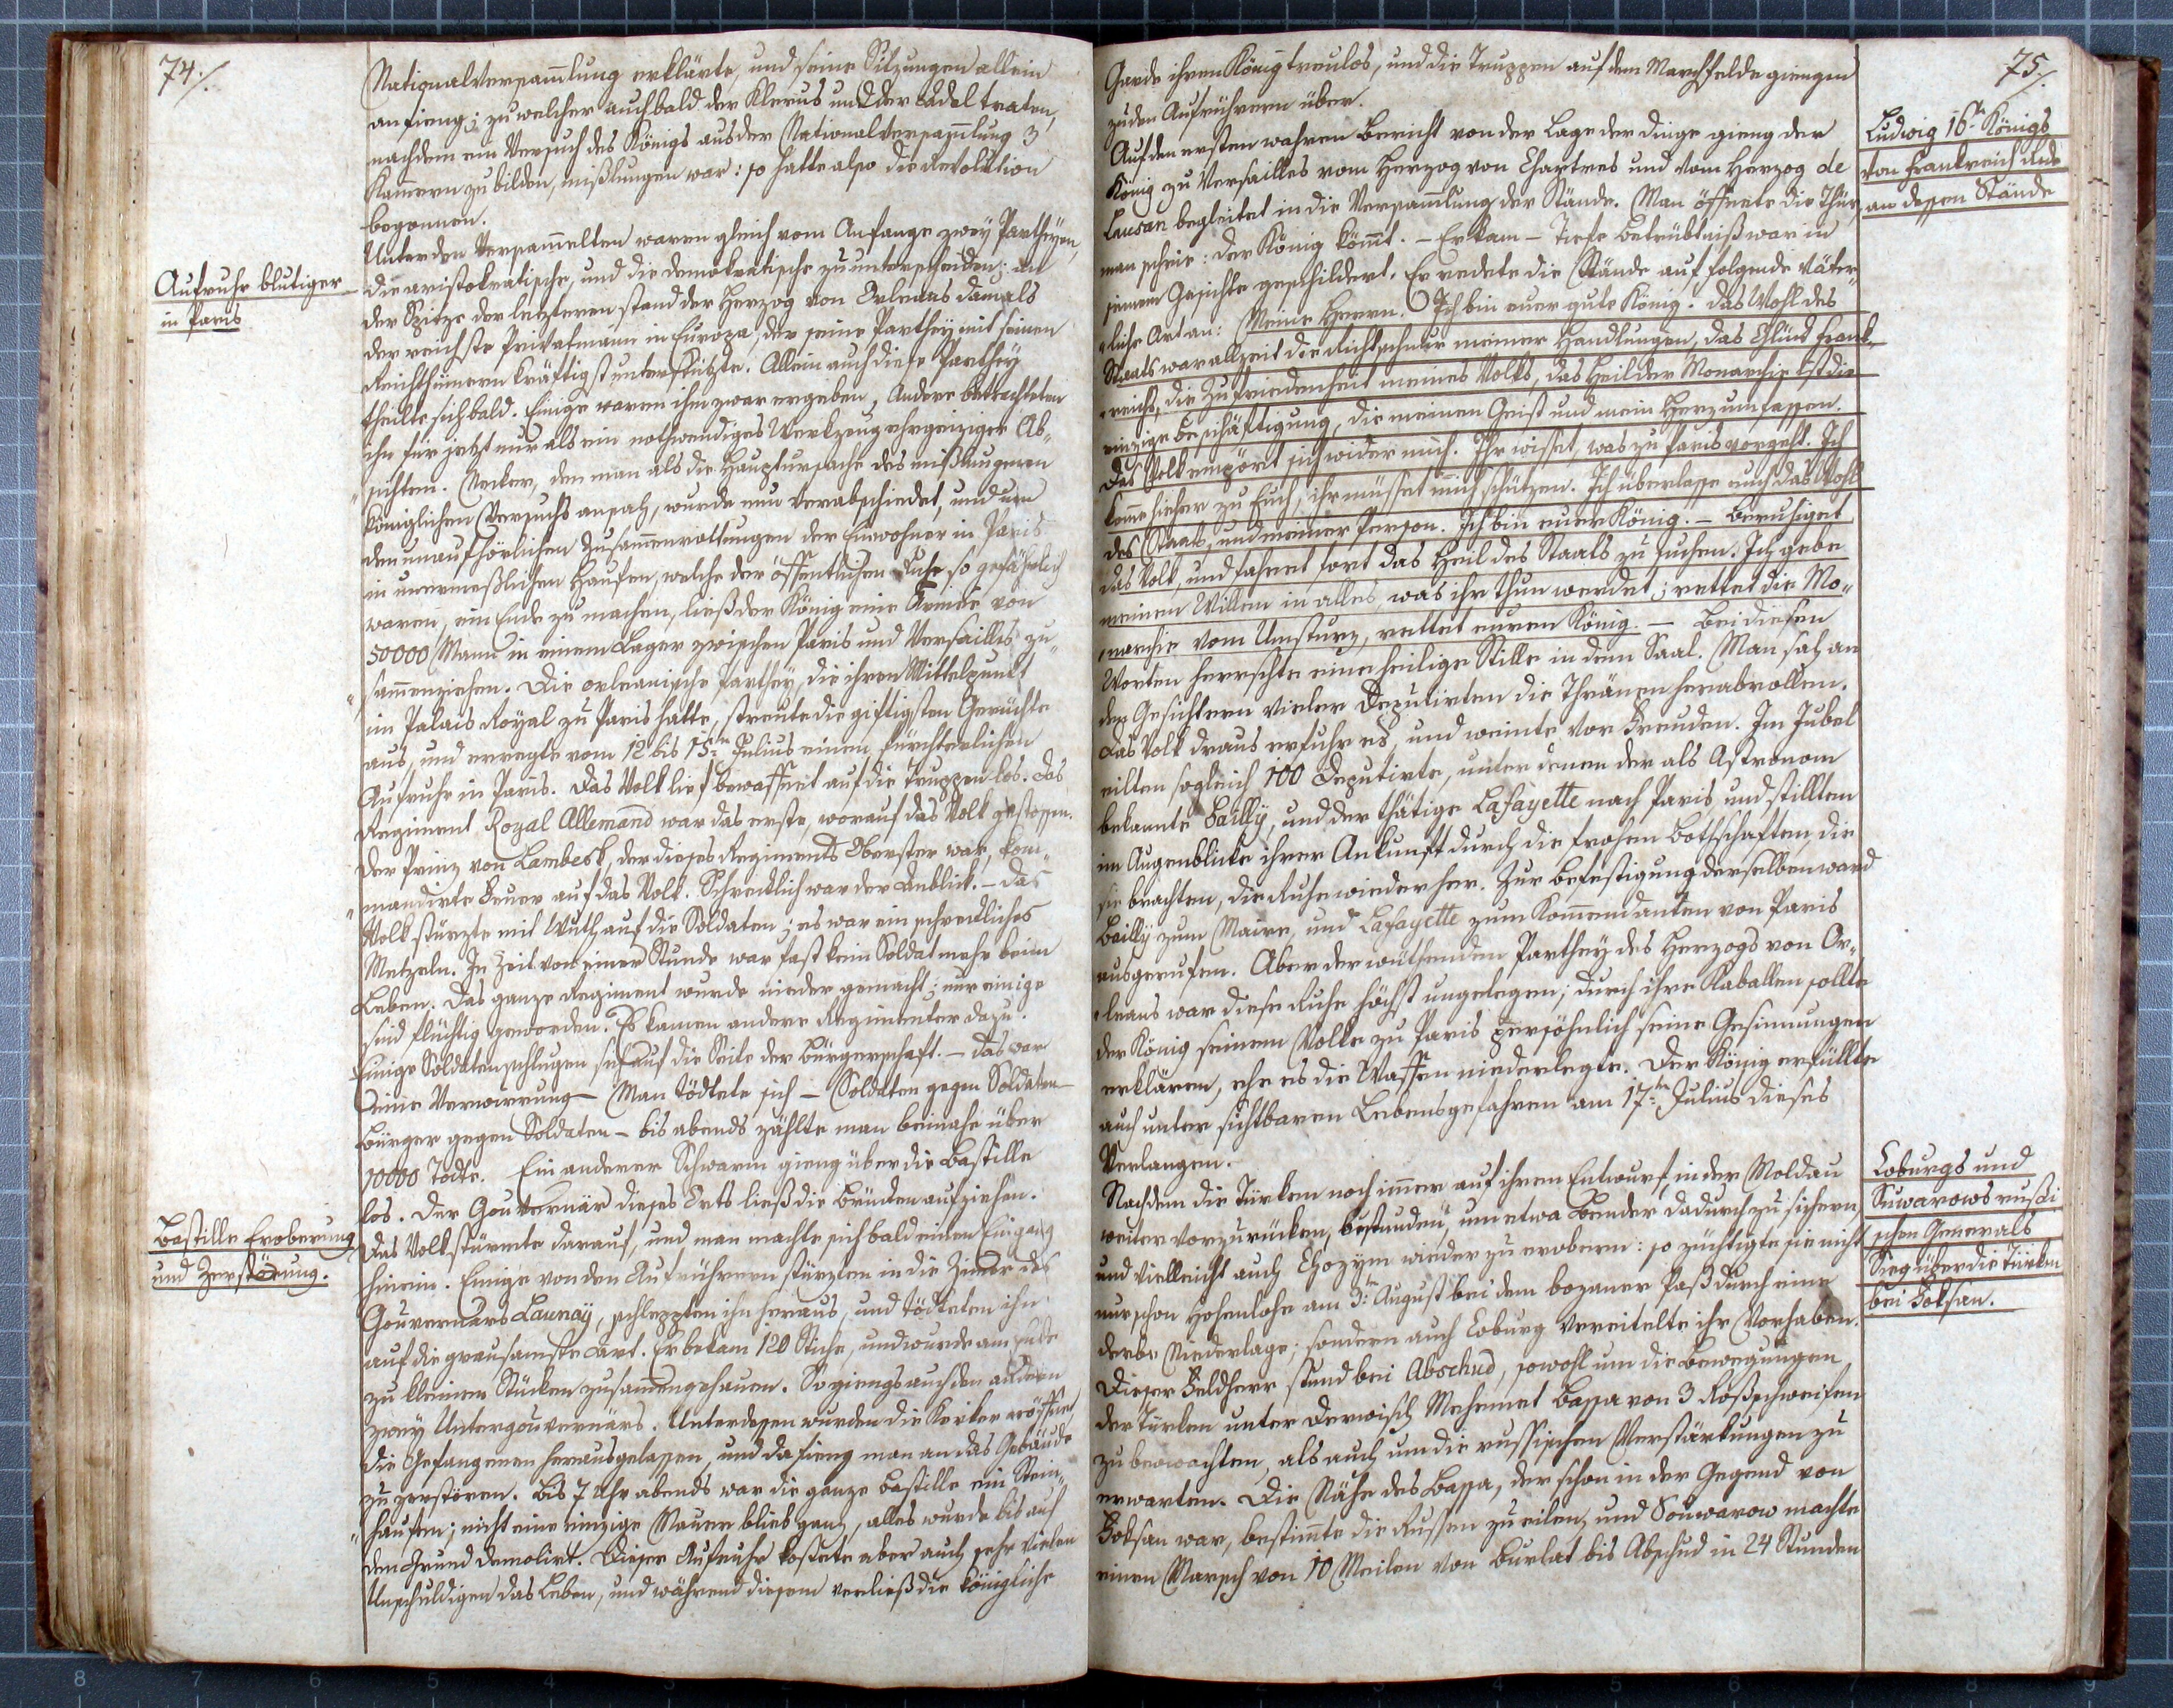 74./.
Nationalversam̄lung erklärte, und seine Sitzungen allein
anfieng; zu welcher auch bald der Klerus und der Adel traten,
nachdem ein Versuch des Königs aus der Nationalversam̄lung 3
Kam̄ern zu bilden, mißlungen war: so hatte also die Revolution
begonnen.
Unter den Versam̄elten waren gleich vom Anfange zwey Partheyen,
Aufruhr blutiger
in Paris
die aristokratische, und die demokratische zu unterscheiden; an
der Spitze der letzteren stand der Herzog von Orleans damals
der reichste Privatmann in Europa, der seine Parthey mit seinen
Reichthümern kräftigst unterstützte. Allein auch diese Parthey
theilte sich bald. Einige waren ihm zwar ergeben, Andere betrachteten
ihn für jetzt nur als ein nothwendiges Werkzeug ehrgeiziger Ab„
„sichten. Necker, den man als die Hauptursache des mißlungenen
königlichen Versuchs ansah, wurde nun verabschiedet, und um
den unaufhörlichen Zusam̄enrottungen der Einwohner in Paris
in unermeßlichen Haufen, welche der öffentlichen Ruhe so gefährlich
waren, ein Ende zu machen, ließ der König eine Armée von
50000 Mann in einem Lager zwischen Paris und Versailles zu„
„sam̄enziehen. Die orleanische Parthey, die ihren Mittelpunkt
im Palais Royal zu Paris hatte, streute die giftigsten Gerüchte
aus, und erregte vom 12 bis 15ten Julius einen fürchterlichen
Aufruhr in Paris. Das Volk lief bewaffnet auf die Truppen los. Das
Regiment Royal Allemand war das erste, worauf das Volk gestossen.
Der Prinz von Lambesk, der dieses Regiments Oberster war, kom„
„mandirte Feuer auf das Volk. Schrecklich war der Anblick. – Das
Volk stürzte mit Wuth auf die Soldaten; es war ein schreckliches
Metzeln. In Zeit von einer Stunde war fast kein Soldat mehr beim
Leben. Das ganze Regiment wurde nieder gemacht; nur einige
sind flüchtig geworden. Es kamen andere Regimenter dazu.
Einige Soldaten schlugen sich auf die Seite der Bürgerschaft. – Das war
eine Verwirrung – Man tödtete sich – Soldaten gegen Soldaten –
Bürger gegen Soldaten – bis abends zählte man beinahe über
10000 Todte. Ein anderer Schwarm gieng über die Bastille
los. Der Gouvernär dieses Orts ließ die Brücken aufziehen.
Bastille Eroberung
und Zerstörung.
Das Volk stürmte darauf, und man machte sich bald einen Eingang
hinein. Einige von den Aufrührern stürzten in die Zim̄er des
Gouvernärs Launaÿ, schleppten ihn heraus, und tödteten ihn
auf die grausamste Art. Er bekam 120 Stiche, und wurde am Ende
zu kleinen Stücken zusam̄engehauen. So giengs auch den andern
zwey Untergouvernärs. Unterdessen wurden die Kerker eröffnet
die Gefangenen herausgelassen, und da fieng man an das Gebäude
zu zerstören. Bis 7 Uhr abends war die ganze Bastille ein Stein„
„haufen; nicht eine einzige Mauer blieb ganz, alles wurde bis auf
den Grund demolirt. Dieser Aufruhr kostete aber auch sehr vielen
Unschuldigen das Leben, und während diesem verließ die königliche
75./.
Garde ihren König treulos, und die Truppen auf dem Marchfelde giengen
zu den Aufrührern über.
Ludwig 16ten Königs
von Frankreich Rede
an dessen Stände
Auf den ersten wahren Bericht von der Lage der Dinge gieng der
König zu Versailles vom Herzog von Chartres und vom Herzog de
Lausan begleitet in die Versam̄lung der Stände. Man öffnete die Thür,
man schrie: der König köm̄t. – Er kam – Tiefe Betrübtniß war in
seinem Gesichte geschildert. Er redete die Stände auf folgende väter„
„liche Art an: Meine Herrn. Ich bin euer gute König. Das Wohl des
Staats war allzeit die Richtschnur meiner Handlungen, das Glück Frank„
„reichs, die Zufriedenheit meines Volks, das Heil der Monarchie ist die
einzige Beschäftigung, die meinen Geist und mein Herz umfassen.
Das Volk empört sich wider mich. Ihr wisset, was zu Paris vorgeht. Ich
kom̄e hieher zu Euch, ihr müsset mich schützen. Ich überlasse euch das Wohl
des Staats, und meiner Person. Ich bin euer König. – Beruhiget
das Volk, und fahret fort das Heil des Staats zu suchen. Ich gebe
meinen Willen in alles, was ihr thun werdet; rettet die Mo„
„narchie vom Umsturz, rettet euren König. – Bei diesen
Worten herrschte eine heilige Stille in dem Saal. Man sah an
den Gesichtern vieler Deputirten die Thränen herabrollen.
Das Volk draus erfuhr es, und weinte vor Freuden. Im Jubel
eilten sogleich 100 Deputirte, unter denen der als Astronom
bekannte Baillÿ, und der thätige Lafayette nach Paris und stillten
im Augenblicke ihrer Ankunft durch die frohen Bothschaften, die
sie brachten, die Ruhe wieder her. Zur Befestigung derselben ward
Baillÿ zum Maire, und Lafayette zum Kom̄endanten von Paris
ausgerufen. Aber der wüthenden Parthey des Herzogs von Or„
„leans war diese Ruhe höchst ungelegen; durch ihre Kaballen sollte
der König seinem Volke zu Paris persöhnlich seine Gesinnungen
erklären, ehe es die Waffen niederlegte. Der König erfüllte
auch unter sichtbaren Lebensgefahren am 17ten Julius dieses
Verlangen.
Coburgs und
Suwarows russi
schen Generals
Sieg über die Türken
bei Foksan.
Nachdem die Türken noch im̄er auf ihrem Entwurf in der Moldau
weiter vorzurücken, bestunden, um etwa Bender dadurch zu sichern,
und vielleicht auch Chozym wieder zu erobern: so züchtigte sie nicht
nur schon Hohenlohe am 3ten August bei dem bozaner Paß durch eine
derbe Niederlage; sondern auch Coburg vereitelte ihr Vorhaben.
Dieser Feldherr stund bei Abschud, sowohl um die Bewegungen
der Türken unter Derwisch Mehemet Bassa von 3 Roßschweifen
zu beowachten, als auch um die russischen Verstärkungen zu
erwarten. Die Nähe des Bassa, der schon in der Gegend von
Foksan war, bestim̄te die Russen zu eilen, und Souwarow machte
einen Marsch von 10 Meilen von Burlat bis Abschud in 24 Stunden